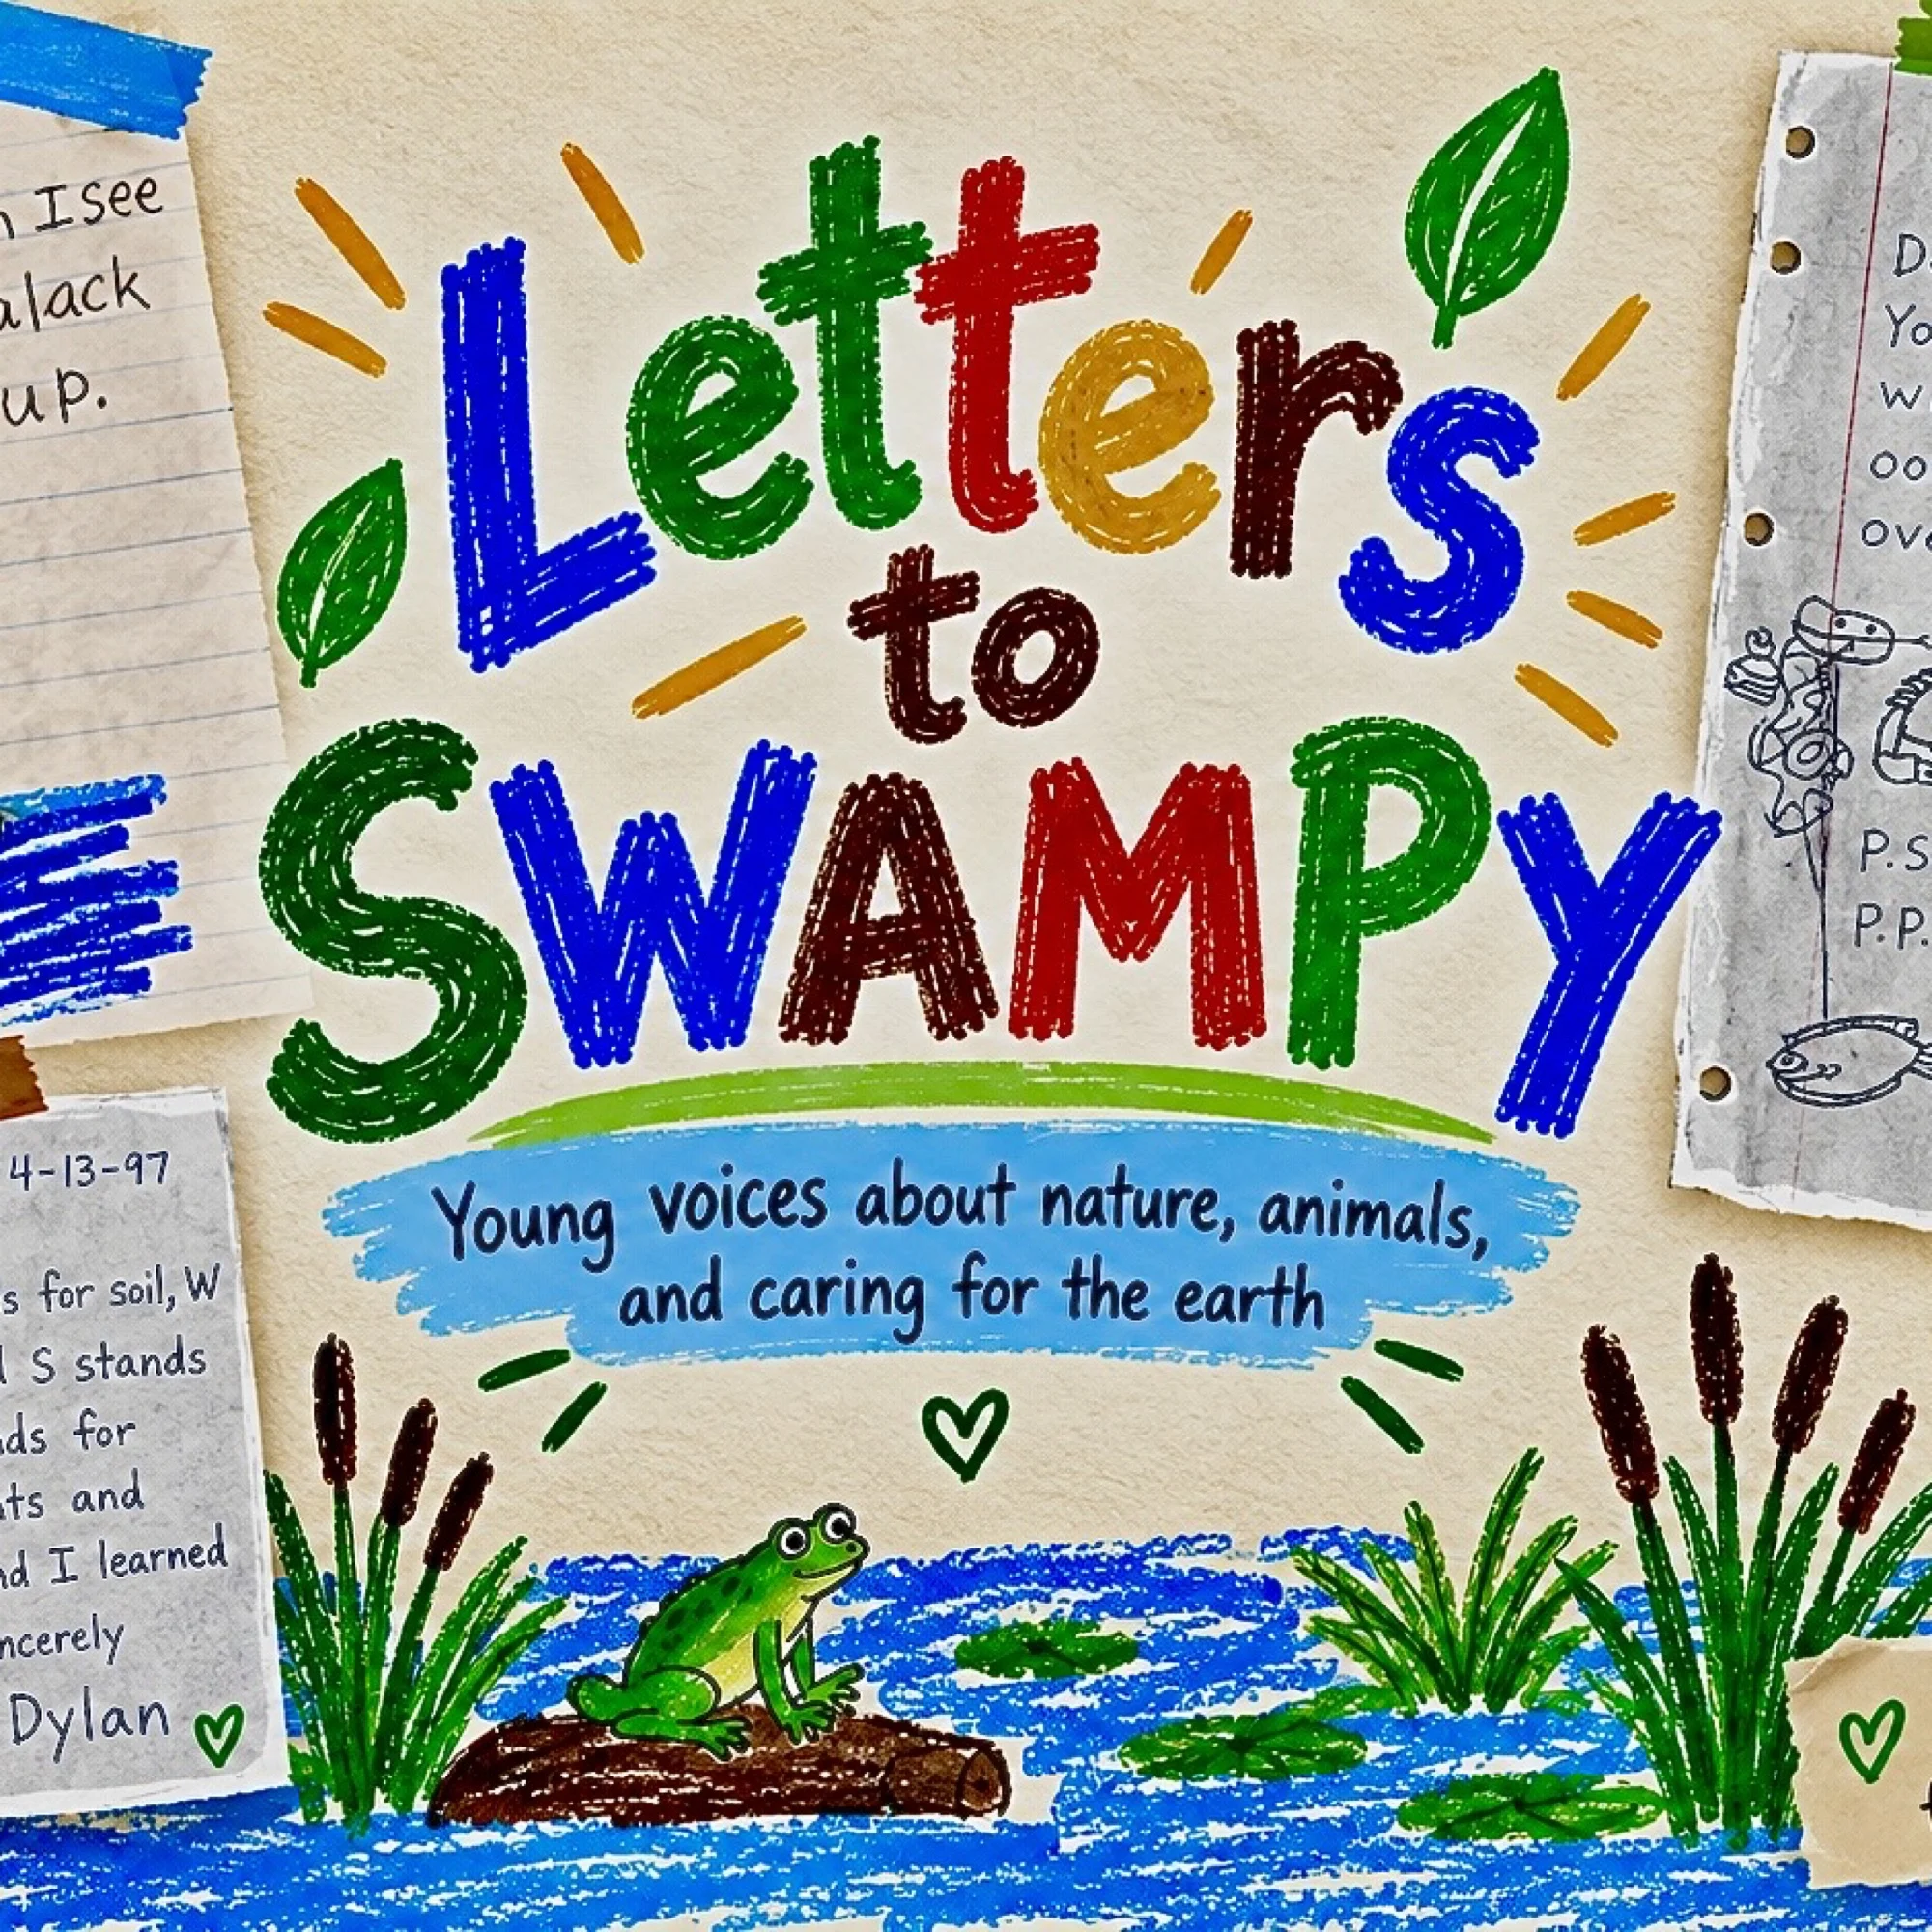 I see
alack
up.
Letters
to
SWAMPY
Young voices about nature, animals,
and caring for the earth
4-13-97
s for soil, W
S stands
ds for
ts and
nd I learned
ncerely
Dylan
D
Yo
w
oo
ov
P.S
P.P.